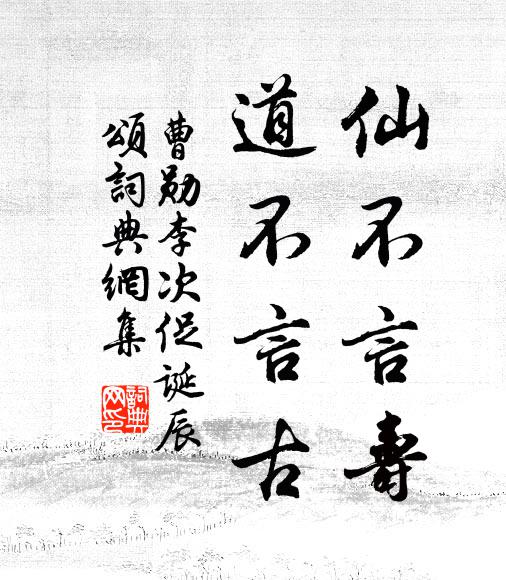 仙不言壽
道不言古
曹勛李次促誕辰
頌詞典網集
詞典網印